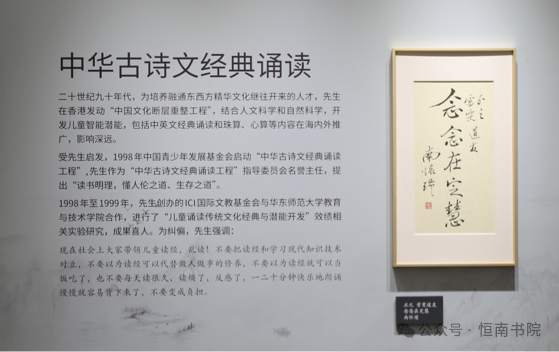 中华古诗文经典诵读
二十世纪九十年代，为培养融通东西方精华文化继往开来的人才，先生
在香港发动“中国文化断层重整工程”，结合人文科学和自然科学，开
发儿童智能潜能，包括中英文经典诵读和珠算、心算等内容在海内外推
广，影响深远。
受先生启发，1998年中国青少年发展基金会启动“中华古诗文经典诵读
工程”，先生作为“中华古诗文经典诵读工程”指导委员会名誉主任，提
出“读书明理，懂人伦之道、生存之道”。
1998年至1999年，先生创办的ICI国际文教基金会与华东师范大学教育
与技术学院合作，进行了“儿童诵读传统文化经典与潜能开发”效绩相
关实验研究，成果喜人。为纠偏，先生强调：
现在社会上大家带领儿童读经，就读！不要把读经和学习现代知识技术
对立，不要以为读经可以代替做人做事的修养，不要以为读经就可以当
饭吃了，也不要每天读很久，读烦了，反感了，一二十分钟快乐地朗诵
慢慢就容易背下来了，不要变成负担。
念念在定慧
南怀瑾
公众号·恒南书院